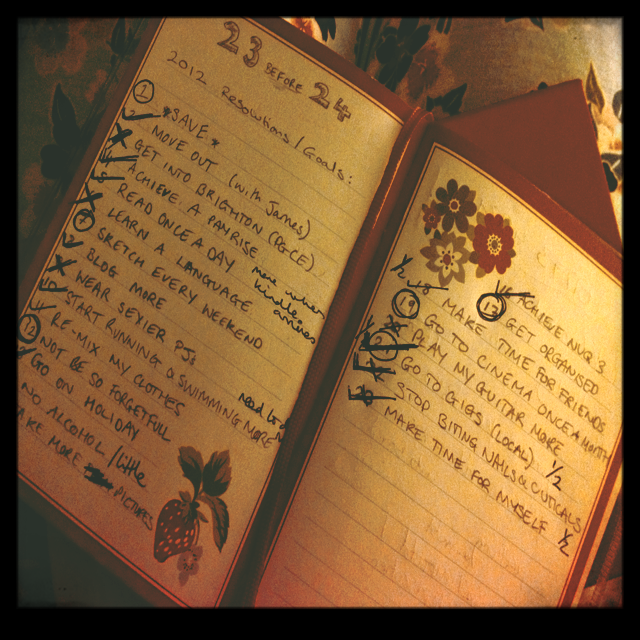 23 BEFORE 24
2012 Resolutions/Goals:
1
*SAVE*
MOVE OUT (with James)
GET INTO BRIGHTON (PGCE)
ACHIEVE A PAYRISE
READ ONCE A DAY
more when kindle arrives
LEARN A LANGUAGE
SKETCH EVERY WEEKEND
BLOG MORE
WEAR SEXIER PJs
START RUNNING & SWIMMING MORE
need to
RE-MIX MY CLOTHES
NOT BE SO FORGETFUL
GO ON HOLIDAY
NO ALCOHOL /little
MORE PICTURES
ACHIEVE NVQ 3
GET ORGANISED
1/2
MAKE TIME FOR FRIENDS
GO TO CINEMA ONCE A MONTH
PLAY MY GUITAR MORE
GO TO GIGS (LOCAL) 1/2
STOP BITING NAILS & CUTICALS
MAKE TIME FOR MYSELF 1/2